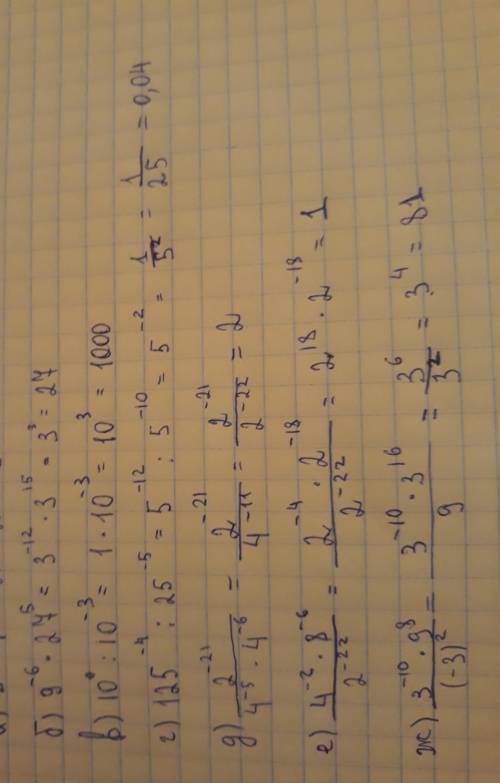 б) 9⁻⁶ · 27⁵ = 3⁻¹² · 3¹⁵ = 3³ = 27
в) 10⁰ : 10⁻³ = 1 · 10⁻³ = 10³ = 1000
г) 125⁻⁴ : 25⁻⁵ = 5⁻¹² : 5⁻¹⁰ = 5⁻² = 1/5² = 1/25 = 0,04
д) 2⁻²¹/(4⁻⁵ · 4⁻⁶) = 2⁻²¹/4⁻¹¹ = 2⁻²¹/2⁻²² = 2
е) (4⁻² · 8⁻⁶)/2⁻²² = (2⁻⁴ · 2⁻¹⁸)/2⁻²² = 2¹⁸ · 2⁻¹⁸ = 1
ж) (3⁻¹⁰ · 9⁸)/(-3)² = (3⁻¹⁰ · 3¹⁶)/9 = 3⁶/3² = 3⁴ = 81